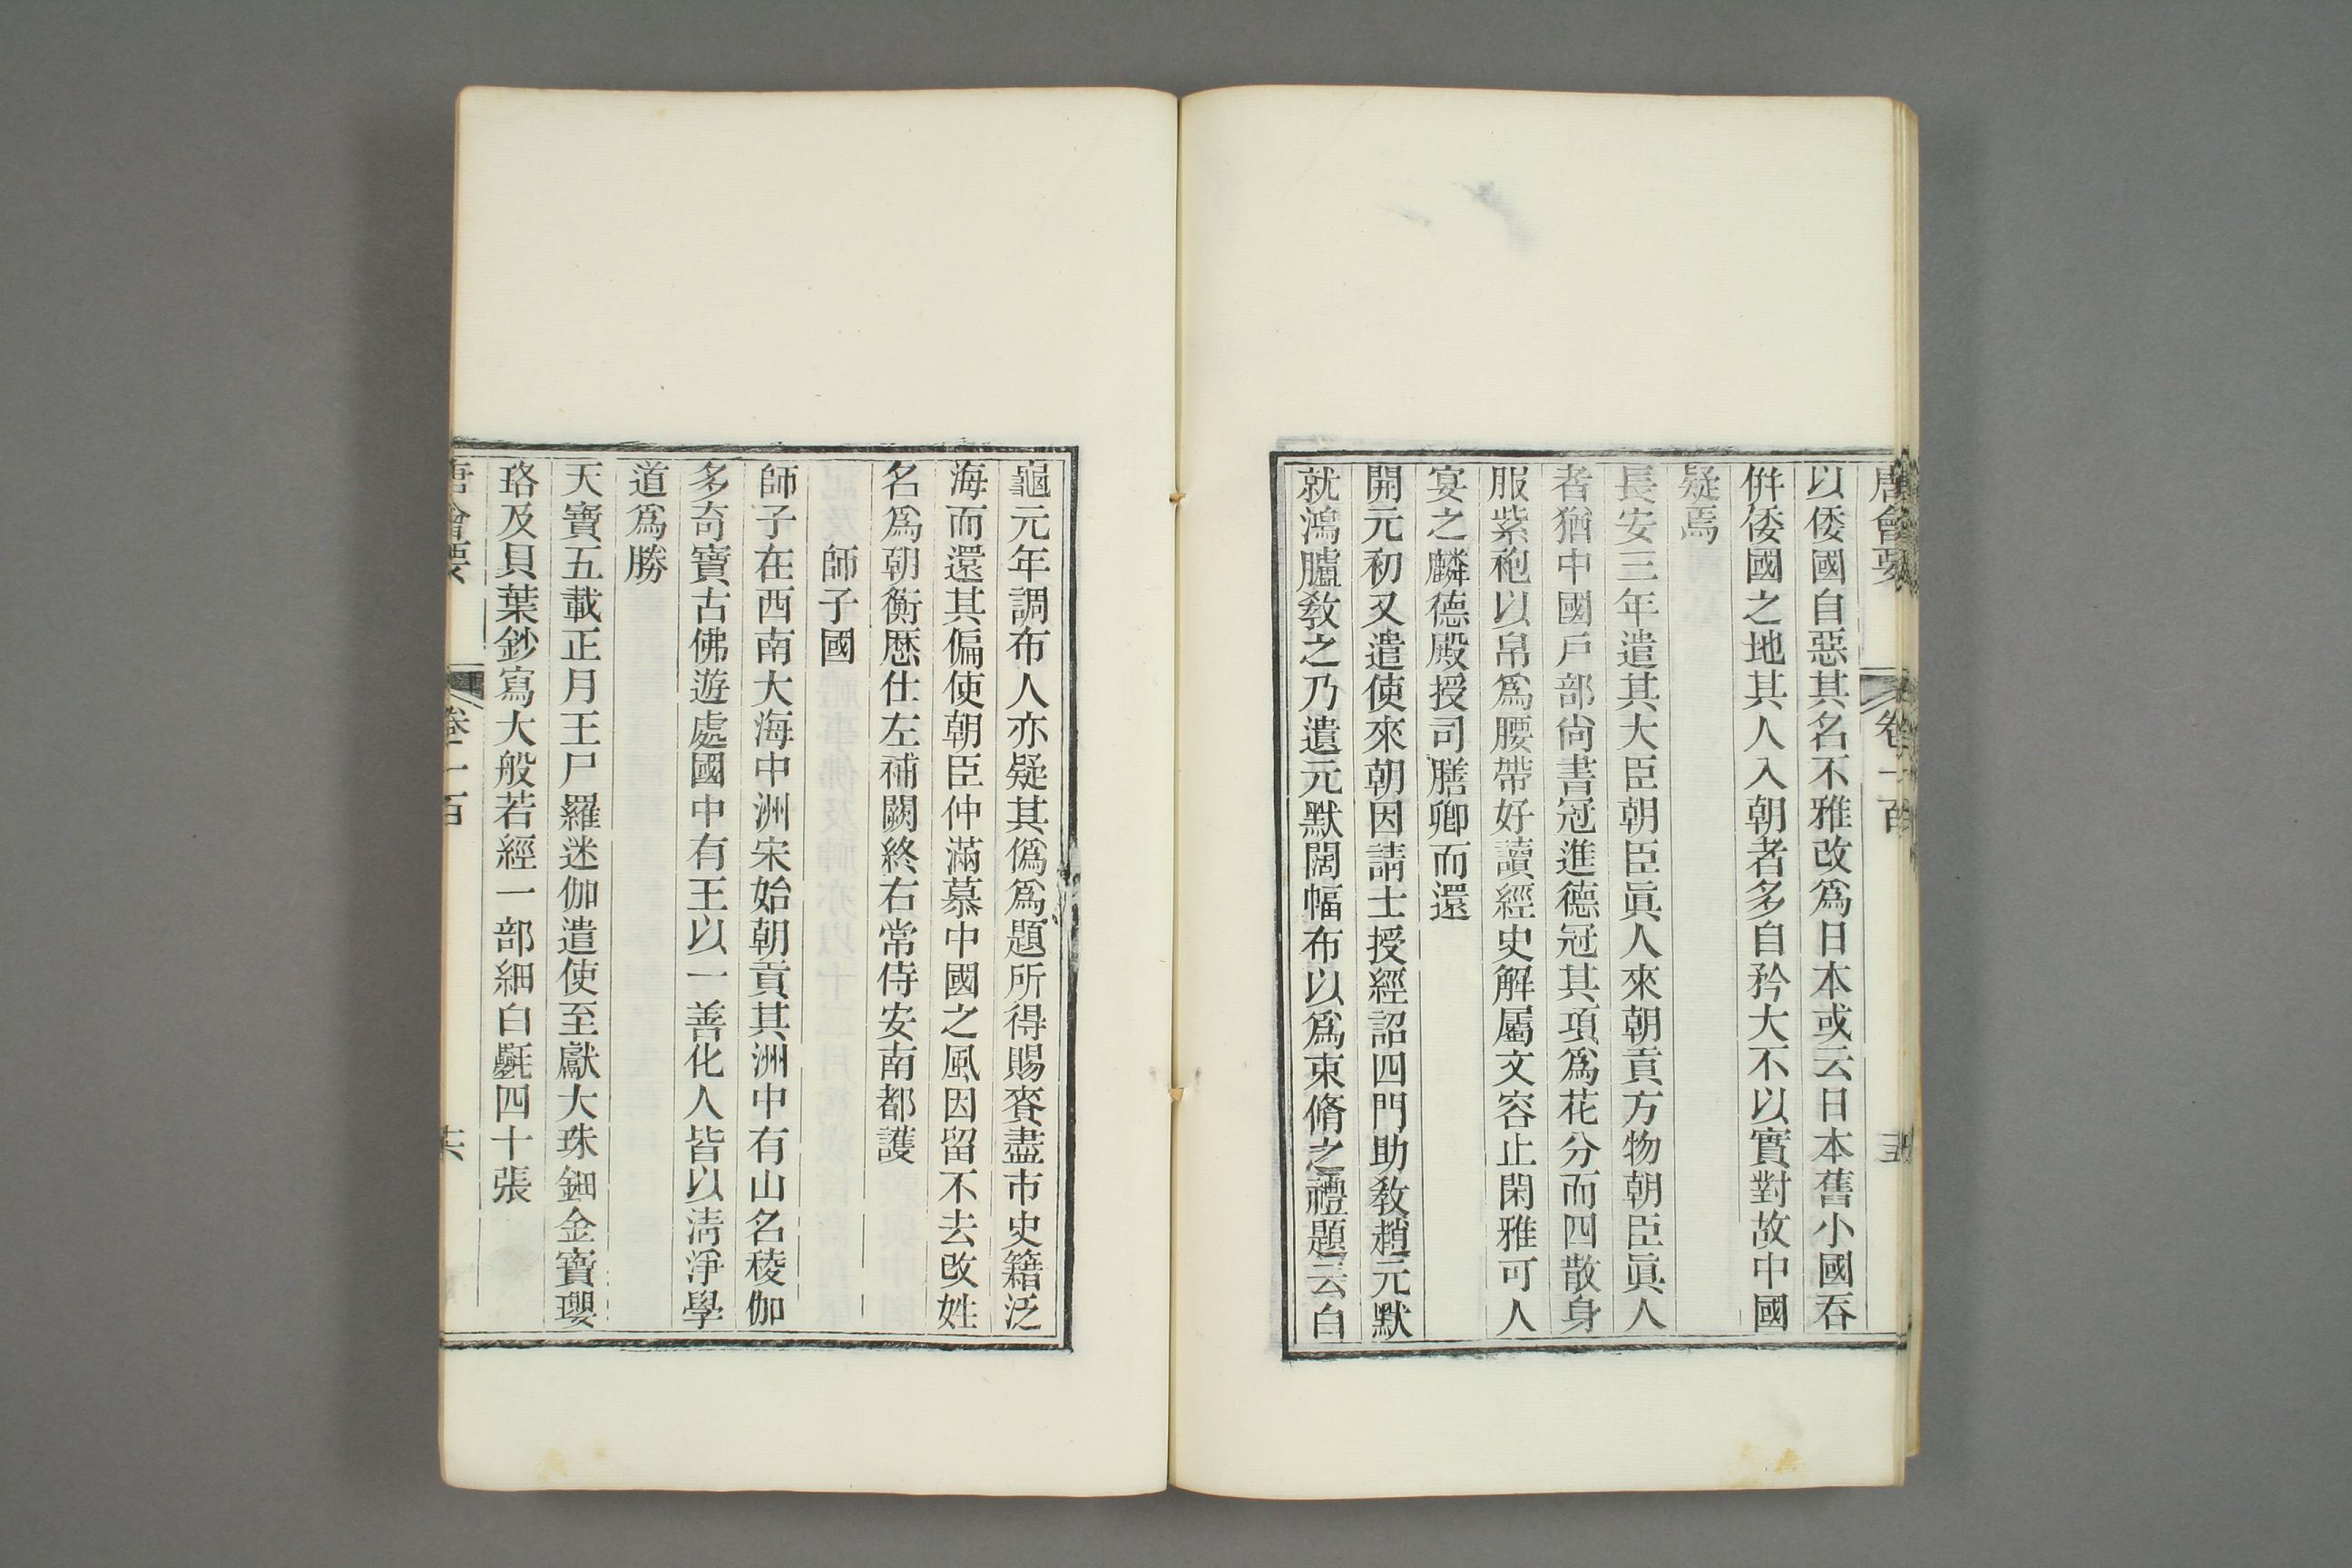 唐會要 卷一百
以倭國自惡其名不雅改爲日本或云日本舊小國吞
倂倭國之地其人入朝者多自矜大不以實對故中國
疑焉
長安三年遣其大臣朝臣眞人來朝貢方物朝臣眞人
者猶中國戶部尙書冠進德冠其項爲花分而四散身
服紫袍以帛爲腰帶好讀經史解屬文容止閑雅可人
宴之麟德殿授司膳卿而還
開元初又遣使來朝因請士授經詔四門助敎趙元默
就鴻臚敎之乃遺元默闊幅布以爲束脩之禮題云白
龜元年調布人亦疑其僞爲題所得賜賚盡市史籍泛
海而還其偏使朝臣仲滿慕中國之風因留不去改姓
名爲朝衡歷仕左補闕終右常侍安南都護
師子國
師子在西南大海中洲宋始朝貢其洲中有山名稜伽
多奇寶古佛遊處國中有王以一善化人皆以淸淨學
道爲勝
天寶五載正月王尸羅迷伽遣使至獻大珠鈿金寶瓔
珞及貝葉鈔寫大般若經一部細白氎四十張
唐會要 卷一百 十六